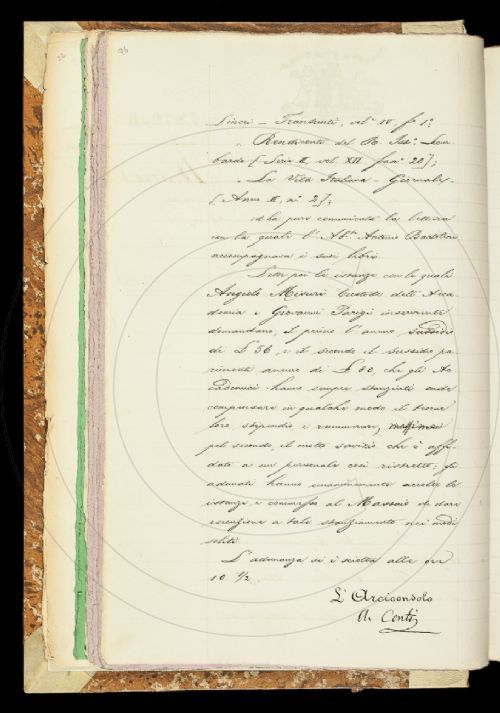 96
Lincei - Transunti, vol. IV f. 1°;
Rendiconto del R. Ist. Lom-
bardo [Serie II, vol. XII fasc. 20];
La Vita Italiana - Giornale -
[Anno II, n. 2];
ed ha pure comunicata la lettera
con la quale l' Ab. Antonio Bartolini
accompagnava i suoi libri.
Lette poi le istanze con le quali
Angiolo Misuri Custode dell' Acca
demia e Giovanni Parigi inserviente
domandano, il primo l' annuo sussidio
di £ 56, e il secondo il sussidio pa
rimente annuo di £ 80, che gli Ac
cademici hanno sempre stanziati onde
compensare in qualche modo il tenue
loro stipendio e rimunerare,
pel secondo, il molto servizio che è affi-
dato a un personale così ristretto; gli
adunati hanno unanimemente accolte le
istanze e commesso al Massaio di dare
esecuzione a tale stanziamento nei modi
soliti.
L' adunanza si è sciolta alle ore
10 1/2.
L' Arciconsolo
A. Conti